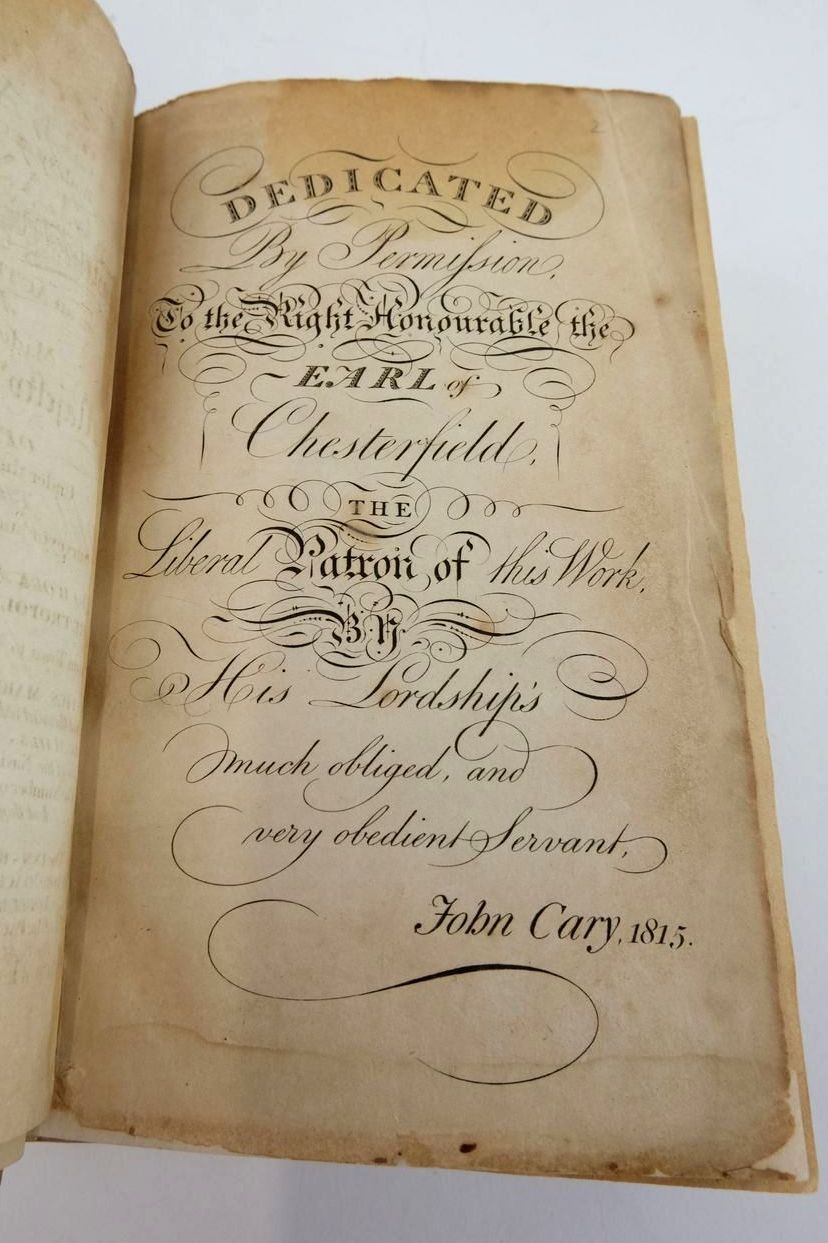 2
DEDICATED
By Permiſsion,
To the Right Honourable the
EARL of
Chesterfield,
THE
Liberal Patron of this Work,
BY
His Lordship's
much obliged, and
very obedient Servant,
John Cary, 1815.